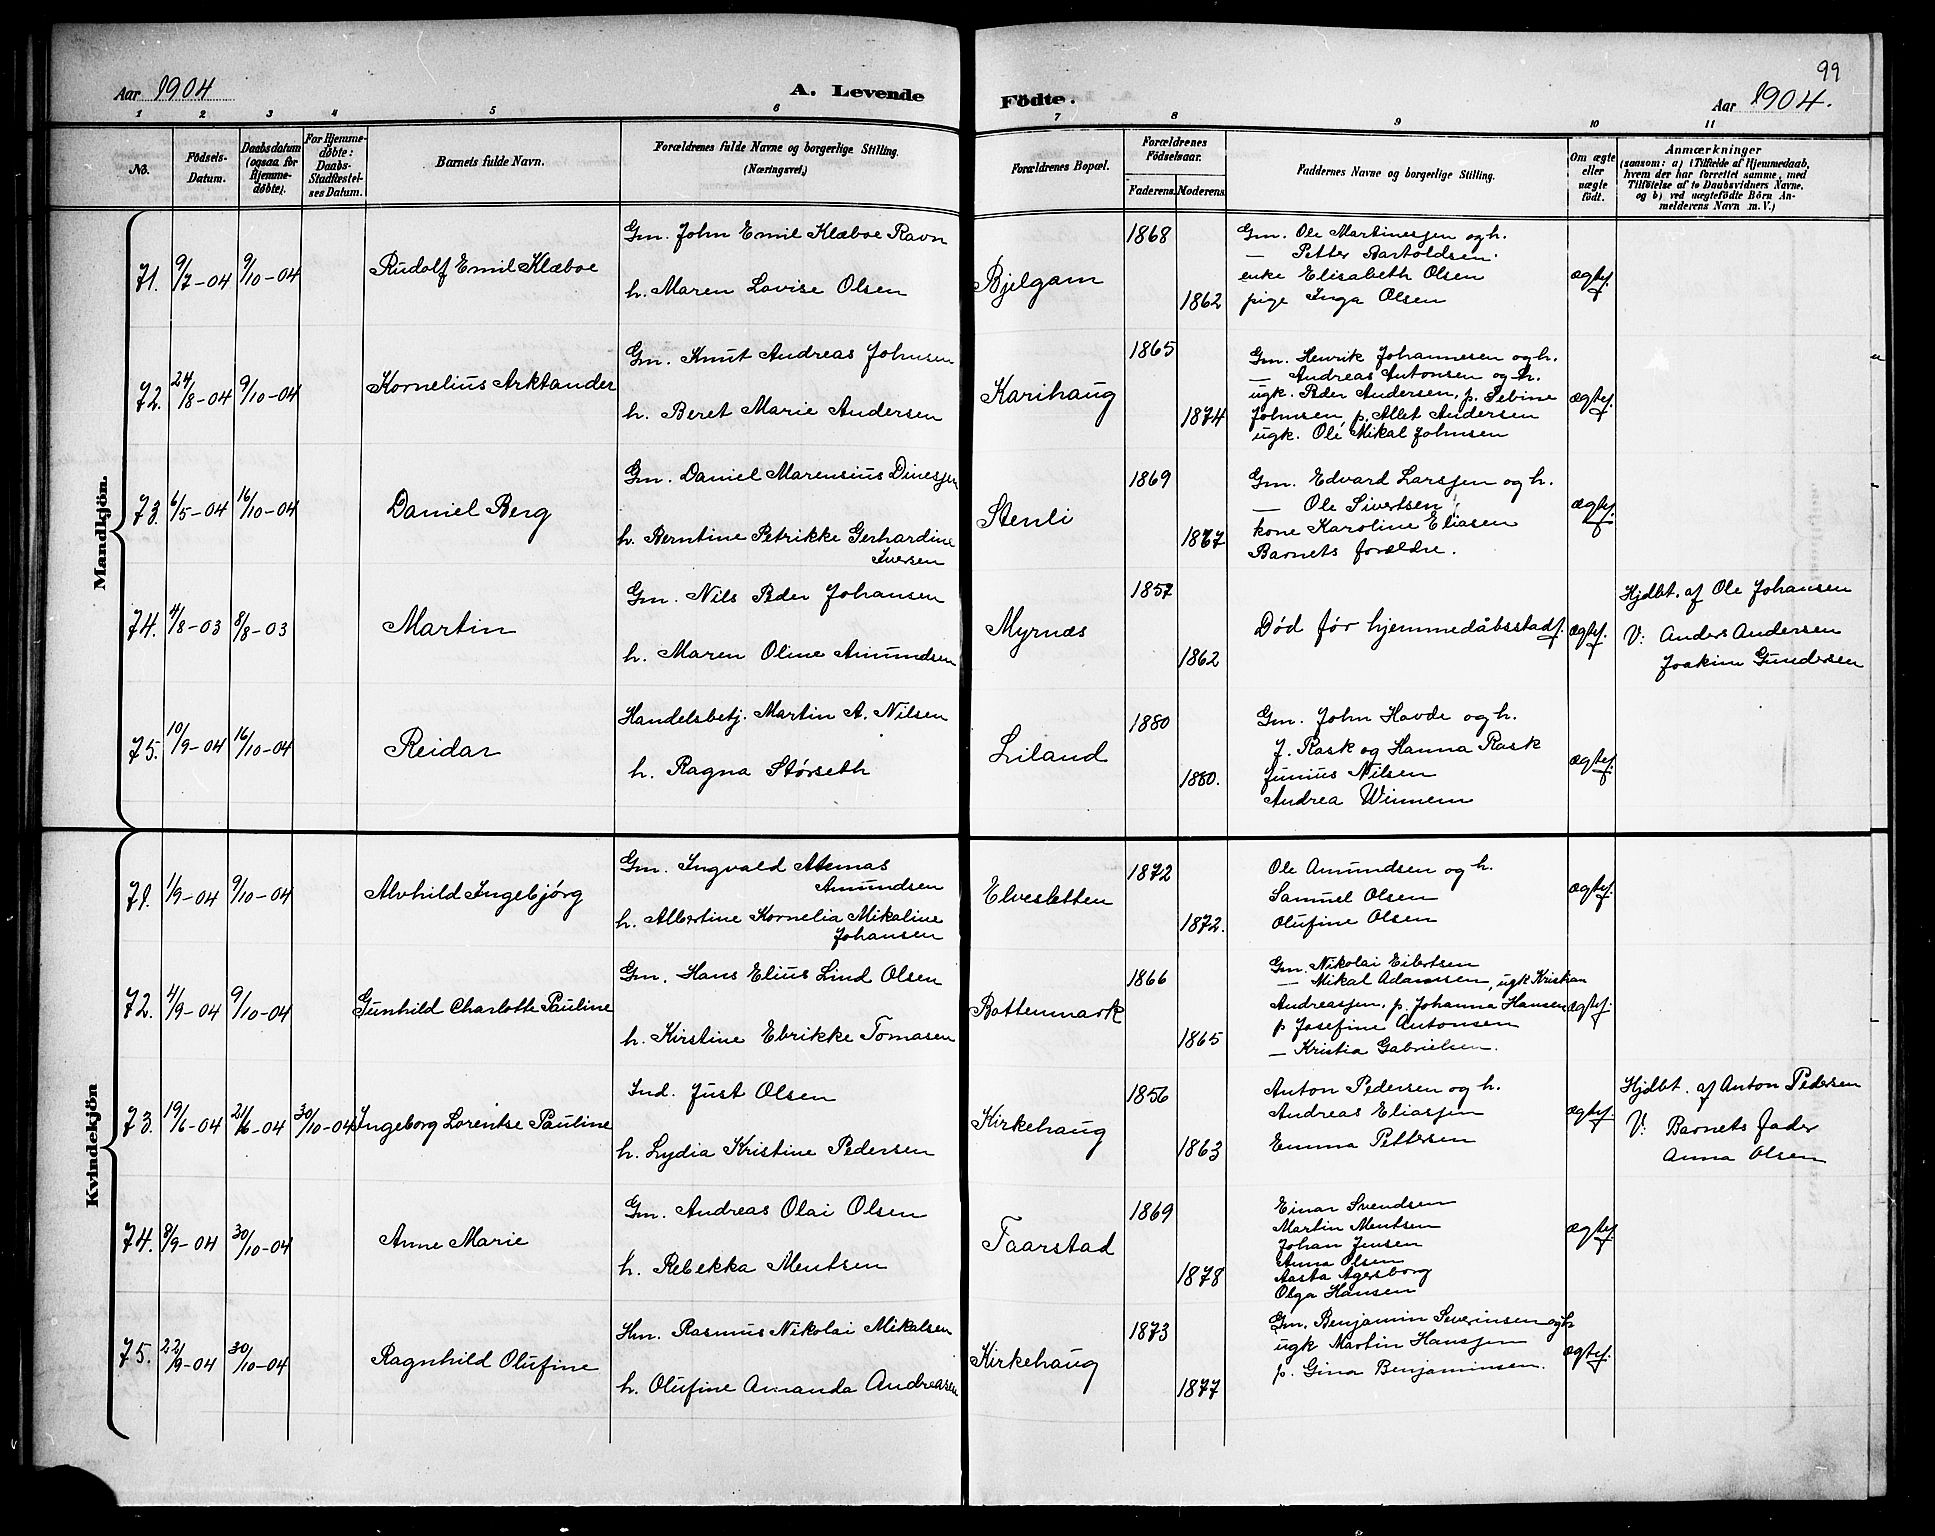 Aar 1904
A. Levende
Födte.
99
Aar 1904.
1 2 3 4 5 6 7 8 9 10 11
No.
Födsels-
Datum.
Daabsdatum
(ogsaa for
Hjemme-
döbte).
For Hjemme-
döbte:
Daabs-
Stadfæstel-
ses Datum.
Barnets fulde Navn.
Forældrenes fulde Navne og borgerlige Stilling.
(Næringsvei.)
Forældrenes Bopæl.
Forældrenes
Födselsaar.
Faderens. Moderens.
Faddernes Navne og borgerlige Stilling.
Om ægte
eller
uægte
födt.
Anmærkninger
(saasom: a) i Tilfælde af Hjemmedaab,
hvem der har forrettet samme, med
Tilföielse af to Daabsvidners Navne,
og b) ved uægtefödte Börn An-
melderens Navn m. V.)
Mandkjön.
71. 9/7-04 9/10-04 Rudolf Emil Klæboe
Gm. John Emil Klæboe Ravn
h. Maren Lovise Olsen
Bjelgam
1868
1862
Gm. Ole Martinessen og h.
— Petter Bartoldsen.
enke Elisabeth Olsen
pige Inga Olsen
ægtef.
72. 24/8-04 9/10-04 Kornelius Arktander
Gm. Knut Andreas Johnsen
h. Beret Marie Andersen
Karihaug
1865
1874
Gm. Henrik Johannesen og h.
— Andreas Antonsen og h.
ugk. Peder Andersen, p. Sebine
Johnsen, p. Allet Andersen
ugk. Ole Mikal Johnsen
ægtef.
73. 6/5-04 16/10-04 Daniel Berg
Gm. Daniel Marensius Dinessen
h. Berntine Petrikke Gerhardine
Iversen
Stenli
1869
1867
Gm. Edvard Larssen og h.
— Ole Sivertsen
kone Karoline Eliasen
Barnets forældre.
ægtef.
74. 4/8-03 8/8-03 Martin
Gm. Nils Peder Johansen
h. Maren Oline Amundsen
Myrnæs
1857
1862
Død før hjemmedåbsstadf.
ægtef.
Hjdbt. af Ole Johansen
V: Anders Andersen
Joakim Gundersen
75. 10/9-04 16/10-04 Reidar
Handelsbetj. Martin A. Nilsen
h. Ragna Størseth
Liland
1880
1880.
Gm. John Hovde og h.
J. Rask og Hanna Rask
Junius Nilsen
Andrea Winnem
ægtef.
Kvindekjön
71. 1/9-04 9/10-04 Alvhild Ingebjörg
Gm. Ingvald Atemas
Amundsen
h. Albertine Kornelia Mikaline
Johansen
Elvesletten
1872
1872.
Ole Amundsen og h.
Samuel Olsen
Olufine Olsen
ægtef.
72. 4/9-04 9/10-04 Gunhild Charlotte Pauline
Gm. Hans Elius Lind Olsen
h. Kirstine Ebrikke Tomasen
Bottenmark
1866
1865
Gm. Nikolai Eibertsen
— Mikal Adamsen, ugk Kristian
Andreassen, p. Johanna Hansen
p Josefine Antonsen
— Kristia Gabrielsen.
ægtef.
73. 19/6-04 21/6-04 30/10-04 Ingeborg Lorentse Pauline
Ind. Just Olsen
h. Lydia Kristine Pedersen
Kirkehaug
1856
1863
Anton Pedersen og h.
Andreas Eliassen
Emma Pettersen
ægtef.
Hjdbt. af Anton Pedersen
V: Barnets fader
Anna Olsen
74. 8/9-04 30/10-04 Anne Marie
Gm. Andreas Olai Olsen
h. Rebekka Mentsen
Faarstad
1869
1878
Einar Svendsen
Martin Mentsen
Johan Jensen
Anna Olsen
Aasta Agersborg
Olga Hansen
ægtef.
75. 22/9-04 30/10-04 Ragnhild Olufine
Hm. Rasmus Nikolai Mikalsen
h. Olufine Amanda Andreasen
Kirkehaug
1873
1877
Gm. Benjamin Severinsen og h
ugk Martin Hanssen
p. Gina Benjaminsen.
ægtef.